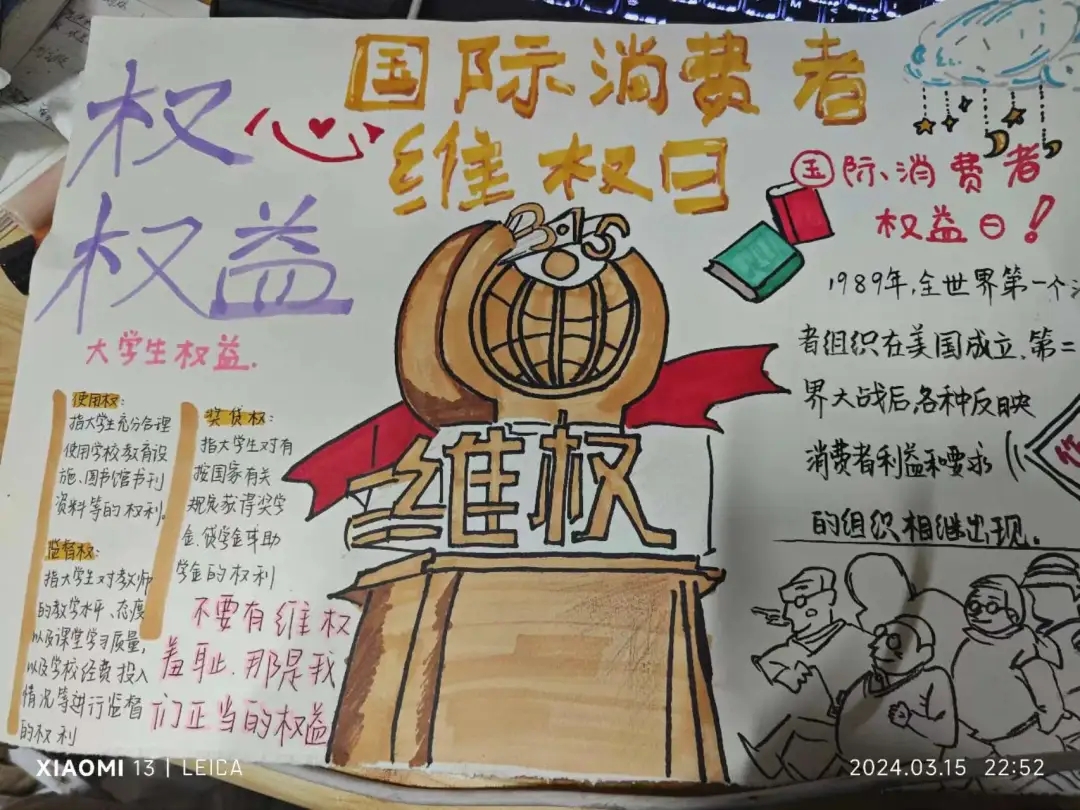 国际消费者
维权日
权心
权益
大学生权益.
使用权:
指大学生充分合理
使用学校教育设
施、图书馆书刊
资料等的权利。
监督权:
指大学生对教师
的教学水平、态度
以及课堂学习质量,
以及学校经费投入
情况等进行监督
的权利
奖贷权:
指大学生对有
按国家有关
规定获得奖学
金、贷学金
学金的权利
不要有维权
羞耻.那是我
们正当的权益
315
维权
国际消费者
权益日!
1989年,全世界第一个
者组织在美国成立.第二
界大战后,各种反映
消费者利益和要求
的组织相继出现。
XIAOMI 13 | LEICA
2024.03.15 22:52